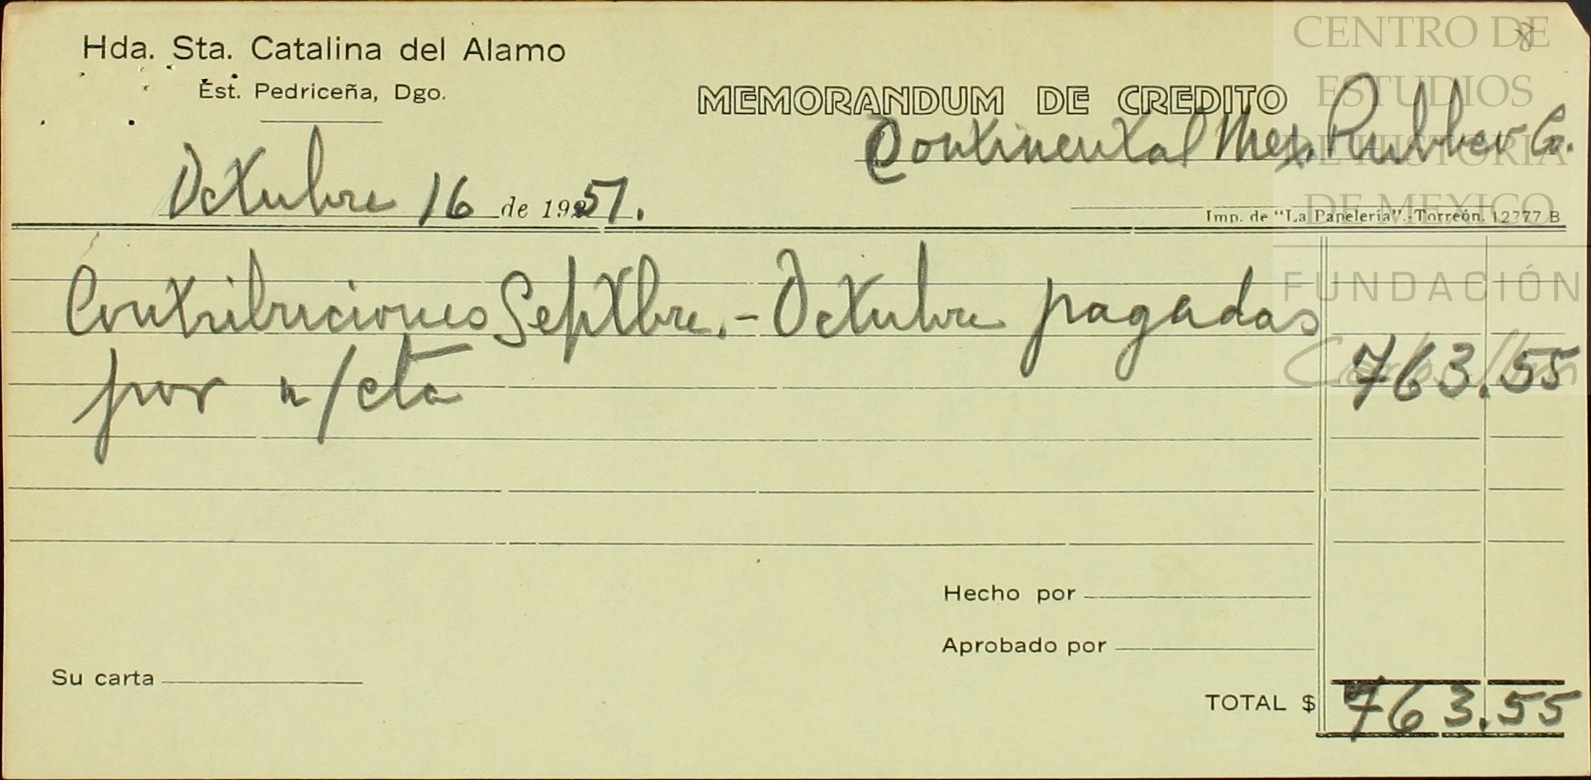 Hda. Sta. Catalina del Alamo
Est. Pedriceña, Dgo.
MEMORANDUM DE CREDITO
Continental Mex. Rubber Co.
Octubre 16 de 1951.
Imp. de "La Papelería".-Torreón. 12777 B
Contribuciones Septbre.- Octubre pagadas
por n/cta 763.55
Hecho por
Aprobado por
Su carta
TOTAL $ 763.55
8
CENTRO DE
ESTUDIOS
DE HISTORIA
DE MEXICO
FUNDACIÓN